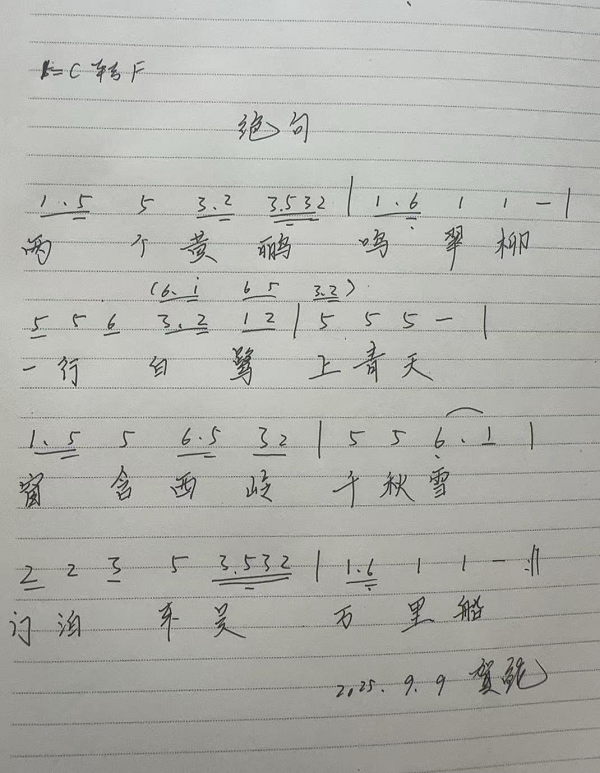 1=C 转 F
绝句
1.5 5 3.2 3.532 | 1.6 1 1 - |
两 个 黄 鹂 鸣 翠 柳
(6.i 6 5 3.2)
5 5 6 3.2 1 2 | 5 5 5 - |
一 行 白 鹭 上 青 天
1.5 5 6.5 3 2 | 5 5 6.1 |
窗 含 西 岭 千 秋 雪
2 2 3 5 3.532 | 1.6 1 1 - :||
门 泊 东 吴 万 里 船
2025.9.9 贺